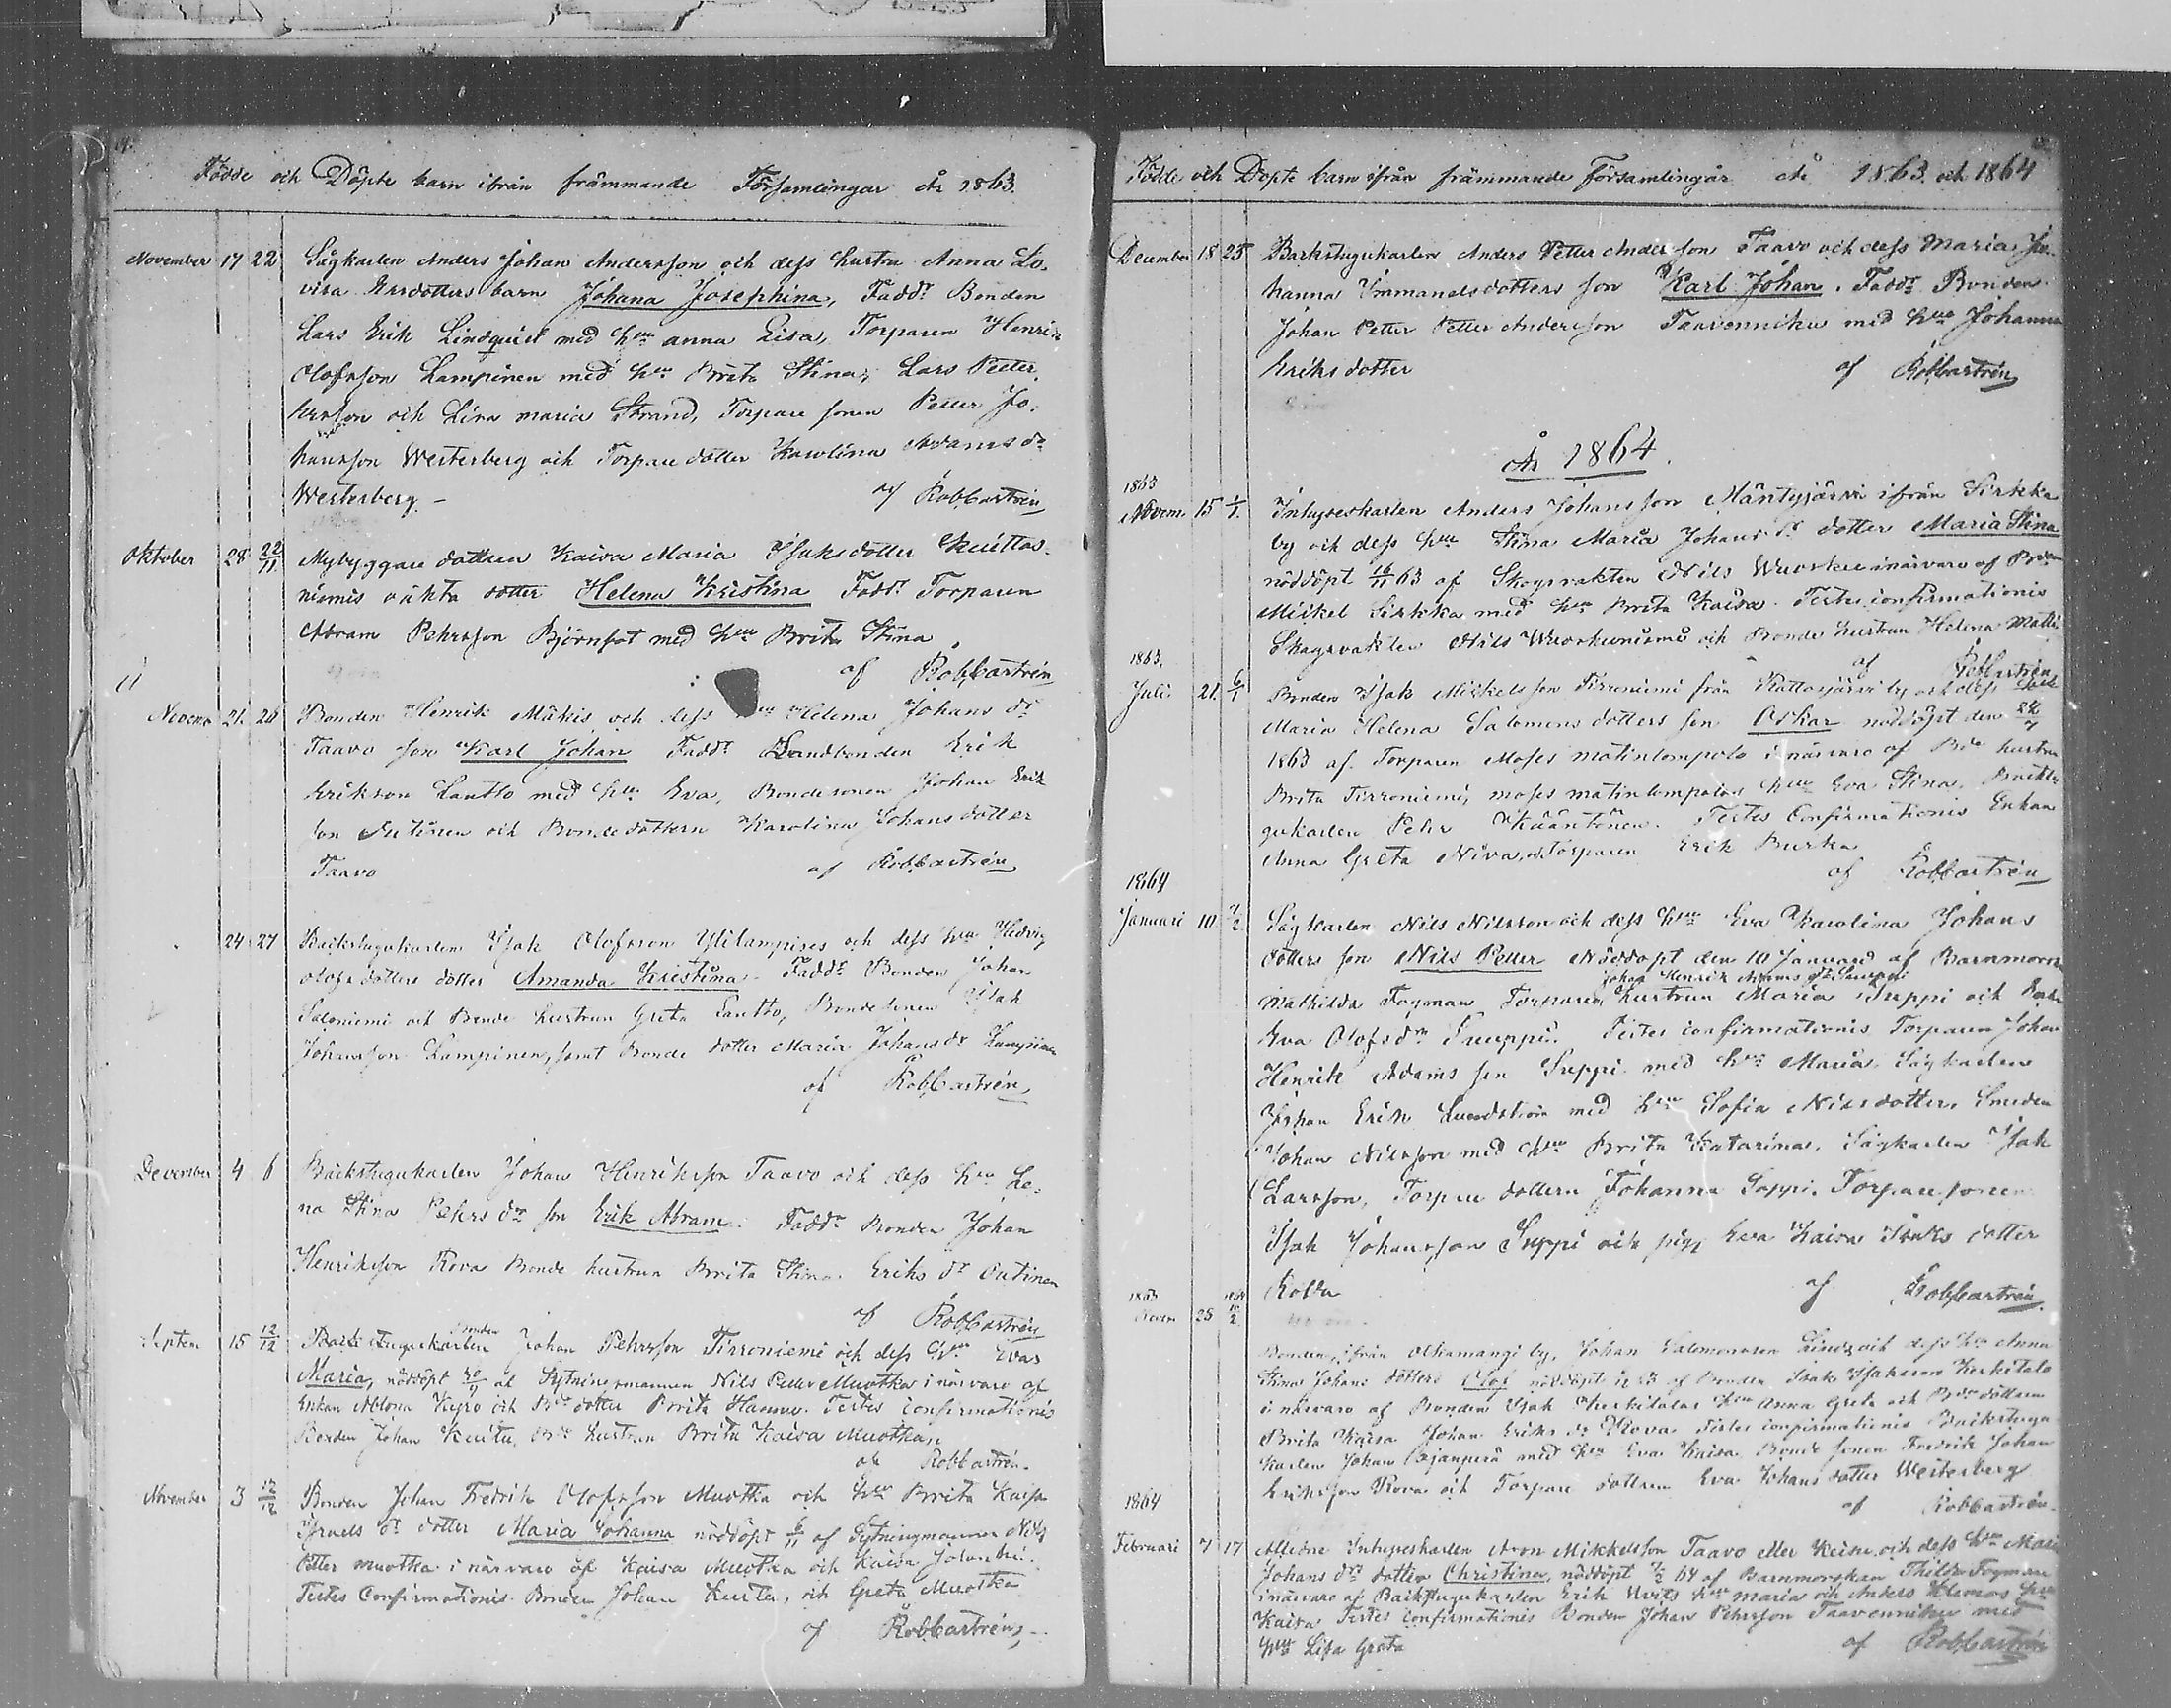 Födde och Döpte barn ifrån främmande Församlingar År 1863.
November 17 22 Sågkarlen Anders Johan Andersson och dess hustru Anna Lo-
visa Larsdotters barn Johana Josephina, Fadd: Bonden
Lars Erik Lindquist med hu anna Lisa, Torparen Henrik
Olofsson Lampinen med hu Brita Stina; Lars Petter
Larsson och Lisa maria Strand, Torpare sonen Petter Jo-
hansson Westerberg och Torpare dotter Karolina Adams dr
Westerberg – af RobCastrén
Oktober 28 22/11 Nybyggare dottren Kaisa Maria Isaks dotter
niemis oäkta dotter Helena Kristina Fadd: Torparen
Abram Pehrsson Björnfot med hu Brita Stina
af RobCastrén
Novem 21 26 Bonden Henrik Mäkis och dess hu Helena Johans dr
Taavo son Karl Johan Fadd: Landbonden Erik
Erikson Lantto med hu Eva, Bondesonen Johan Erik
son och Bondedottern Karolina Johans dotter
Taavo af RobCastrén
24 27 Backstugukarlen Isak Olofsson Ylilampises och dess hu Hedvig
Olofsdotters dotter Amanda Kristina. Fadd: Bonden Johan
Saloniemi och Bonde hustrun Greta Lantto, Bondesonen Isak
Johansson Lampinen, samt Bonde dotter Maria Johans dr Lampinen
af RobCastrén
December 4 6 Backstugukarlen Johan Henriksson Taavo och dess hu Le-
na Stina Pehrs dr son Erik Abram. Fadd: Bonden Johan
Henriksson Rova Bonde hustrun Brita Stina Eriks dr Outinen
af RobCastrén
Septem 15 12/12 Backstugukarlen Bonden Johan Pehrsson Tirroniemi och dess hu Evas
Maria, nöddöpt af Fytningsmannen Nils Petter Muotka i närvaro af
Enkan Keyro och Bde dotter Brita Hannu. Testes confirmationis
Bonden Johan Keutu, Bde hustrun Brita Kaisa Muotka,
af RobCastrén
November 3 12/12 Bonden Johan Fredrik Olofsson Muotka och hu Brita Kaisa
Israels dr dotter Maria Johanna nöddöpt 6/11 af Fytningsmannen Nils
Petter muotka i närvaro af Kaisa Muotka och Kaisa
Testes Confirmationis Bonden Johan Keutu, och Greta Muotka
af RobCastrén,
Födde och Döpte barn ifrån främmande Församlingar År 1863 och 1864
December 18 25 Backstugukarlen Anders Petter Andersson Taavo och dess Maria Jo-
hanna Immanuelsdotters son Karl Johan. Fadd: Bonden
Johan Petter Petter Andersson Taavonniku med hu Johanna
Eriksdotter af RobCastrén
År 1864.
1863
Novem 15 1/1 Inhyseskarlen Anders Johansson Mäntyjärvi ifrån Sirkka
by och dess hu Stina Maria Johans dr dotter Maria Stina
nöddöpt 16/11 63 af Skogsvakten Nils i närvaro af Bden
Mickel Sirkka med hu Brita Kaisa. Testes confirmationis
Skogsvakten Nils och Bonde hustrun Helena Matti
af RobCastrén
1863.
Juli 21. 6/1 Bonden Isak Mickelsson Tirroniemi från Rattosjärvi by och dess
Maria Helena Salomons dotters son Oskar nöddöpt den
1863 af Torparen Moses matinlompolo i närvaro af Bde hustrun
Brita Tirroniemi, moses matinlompolos hu Eva Stina, Backstu-
gukarlen Pehr Kääntönen. Testes Confirmationis Enkan
Anna Greta Niva, och Torparen Erik Burka
af RobCastrén
1864
Januari 10 7/2 Sågkarlen Nils Nilsson och dess hu Eva Karolina Johans
dotters son Nils Petter Nöddöpt den 10 Januari af Barnmorsk
Mathilda Fogman Torparen Johan Henrik Adams hustrun Maria Suppi och
Eva Olofsdr Testes confirmationis Torparen Johan
Henrik Adams son Suppi med hu Maria, Sågkarlen
Johan Erik Lundström med hu Sofia Nilsdotter, Smeden
Johan Nilsson med hu Brita Katarina, Sågkarlen Isak
Larsson, Torpare dottern Johanna Suppi. Torparesonen
Isak Johansson Suppi och pig, Eva Kaisa Isaks dotter
Kolva af RobCastrén
1863 1864
Novem 25 10/2
Bonden, ifrån Alkamangi by, Johan Salomonsson och dess hu Anna
Stina Johans dotters Olof nöddöpt af Bonden Isak Isaksson Kerkitalo
i närvaro af Bonden Isak Kerkitalos hu Anna Greta och Bde dottren
Brita Kaisa Johan Eriks dr Rova Testes confirmationis Backstugu-
karlen Johan med hu Eva Kaisa Bonde sonen Fredrik Johan
Eriksson Rova och Torpare dottren Eva Johans dotter Westerberg
af RobCastrén
1864
Februari 7 17 Inhyseskarlen Aron Mikkelsson Taavo eller och dess hu Maria
Johans drs dotter Christina, nöddöpt 64 af Barnmorskan Thilda Fogman
i närvaro af Backstugukarlen Erik hu maria och Anders Klemos hu
Kaisa Testes confirmationis Bonden Johan Pehrsson Taavonniku med
hu Lisa Greta af RobCastrén